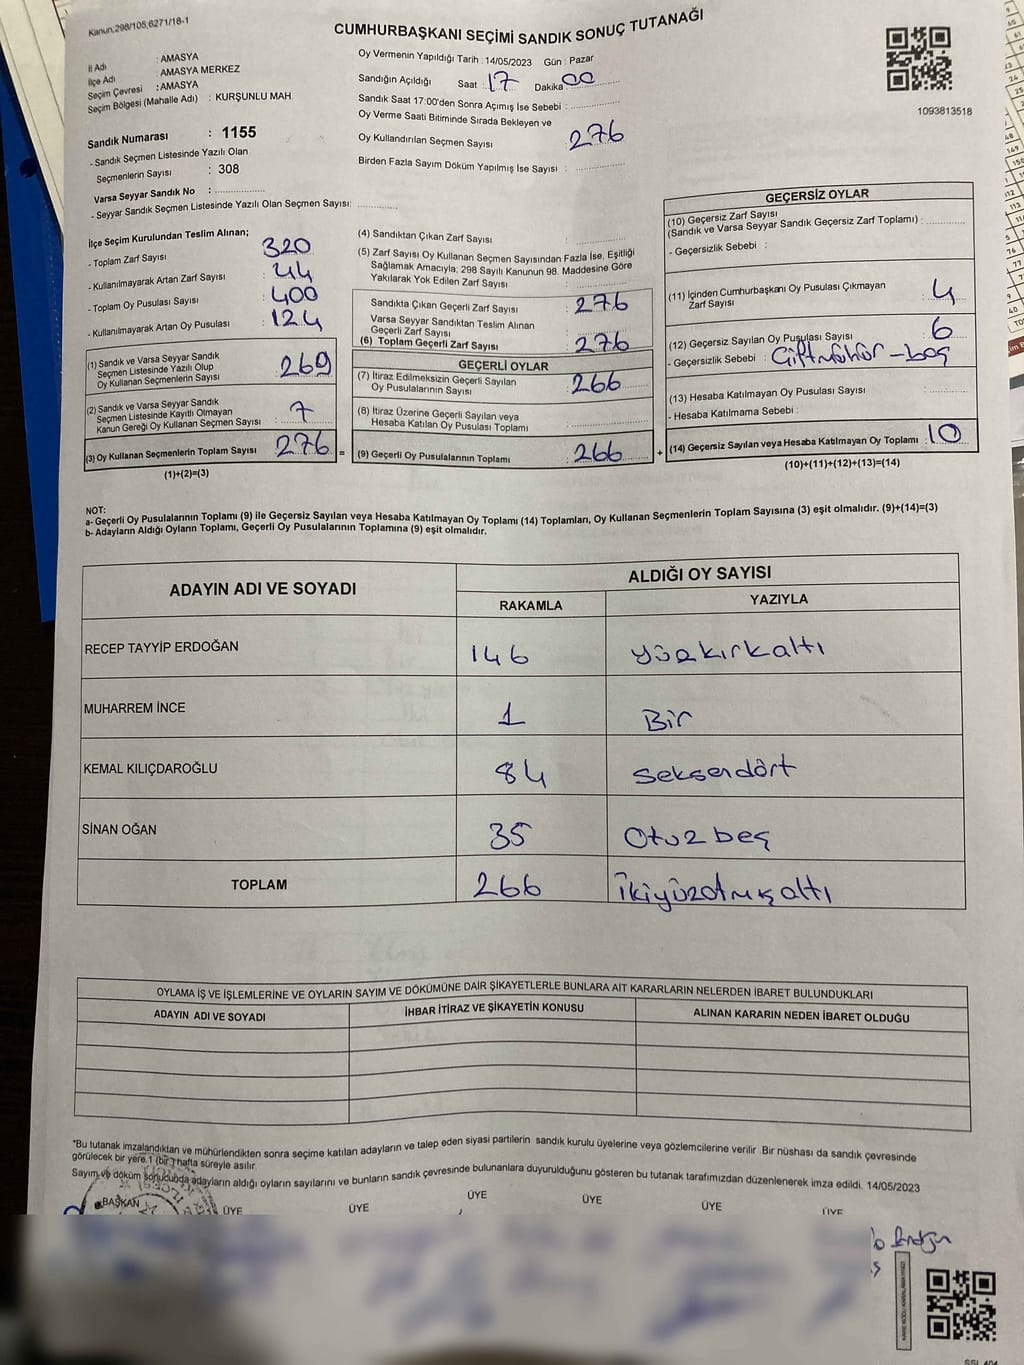 Kanun.298/105,6271/18-1
CUMHURBAŞKANI SEÇİMİ SANDIK SONUÇ TUTANAĞI
İl Adı : AMASYA
İlçe Adı : AMASYA MERKEZ
Seçim Çevresi : AMASYA
Seçim Bölgesi (Mahalle Adı) : KURŞUNLU MAH.
Sandık Numarası : 1155
- Sandık Seçmen Listesinde Yazılı Olan
Seçmenlerin Sayısı : 308
Varsa Seyyar Sandık No :
- Seyyar Sandık Seçmen Listesinde Yazılı Olan Seçmen Sayısı:
Oy Vermenin Yapıldığı Tarih : 14/05/2023 Gün : Pazar
Sandığın Açıldığı Saat : 17 Dakika 00
Sandık Saat 17:00'den Sonra Açımış İse Sebebi :
Oy Verme Saati Bitiminde Sırada Bekleyen ve
Oy Kullandırılan Seçmen Sayısı : 276
Birden Fazla Sayım Döküm Yapılmış İse Sayısı :
1093813518
İlçe Seçim Kurulundan Teslim Alınan;
- Toplam Zarf Sayısı : 320
- Kullanılmayarak Artan Zarf Sayısı : 44
- Toplam Oy Pusulası Sayısı : 400
- Kullanılmayarak Artan Oy Pusulası : 124
(1) Sandık ve Varsa Seyyar Sandık
Seçmen Listesinde Yazılı Olup
Oy Kullanan Seçmenlerin Sayısı : 269
(2) Sandık ve Varsa Seyyar Sandık
Seçmen Listesinde Kayıtlı Olmayan
Kanun Gereği Oy Kullanan Seçmen Sayısı : 7
(3) Oy Kullanan Seçmenlerin Toplam Sayısı : 276 =
(1)+(2)=(3)
(4) Sandıktan Çıkan Zarf Sayısı :
(5) Zarf Sayısı Oy Kullanan Seçmen Sayısından Fazla İse, Eşitliği
Sağlamak Amacıyla; 298 Sayılı Kanunun 98. Maddesine Göre
Yakılarak Yok Edilen Zarf Sayısı :
Sandıkta Çıkan Geçerli Zarf Sayısı : 276
Varsa Seyyar Sandıktan Teslim Alınan
Geçerli Zarf Sayısı :
(6) Toplam Geçerli Zarf Sayısı : 276
GEÇERLİ OYLAR
(7) İtiraz Edilmeksizin Geçerli Sayılan
Oy Pusulalarının Sayısı : 266
(8) İtiraz Üzerine Geçerli Sayılan veya
Hesaba Katılan Oy Pusulası Toplamı :
(9) Geçerli Oy Pusulalarının Toplamı : 266 +
GEÇERSİZ OYLAR
(10) Geçersiz Zarf Sayısı
(Sandık ve Varsa Seyyar Sandık Geçersiz Zarf Toplamı) :
- Geçersizlik Sebebi :
(11) İçinden Cumhurbaşkanı Oy Pusulası Çıkmayan
Zarf Sayısı : 4
(12) Geçersiz Sayılan Oy Pusulası Sayısı : 6
- Geçersizlik Sebebi : Çiftmühür - boş
(13) Hesaba Katılmayan Oy Pusulası Sayısı :
- Hesaba Katılmama Sebebi :
(14) Geçersiz Sayılan veya Hesaba Katılmayan Oy Toplamı : 10
(10)+(11)+(12)+(13)=(14)
NOT:
a- Geçerli Oy Pusulalarının Toplamı (9) ile Geçersiz Sayılan veya Hesaba Katılmayan Oy Toplamı (14) Toplamları, Oy Kullanan Seçmenlerin Toplam Sayısına (3) eşit olmalıdır. (9)+(14)=(3)
b- Adayların Aldığı Oyların Toplamı, Geçerli Oy Pusulalarının Toplamına (9) eşit olmalıdır.
ADAYIN ADI VE SOYADI ALDIĞI OY SAYISI
RAKAMLA YAZIYLA
RECEP TAYYİP ERDOĞAN 146 yüzkırkaltı
MUHARREM İNCE 1 Bir
KEMAL KILIÇDAROĞLU 84 seksendört
SİNAN OĞAN 35 Otuzbeş
TOPLAM 266 İkiyüzatmışaltı
OYLAMA İŞ VE İŞLEMLERİNE VE OYLARIN SAYIM VE DÖKÜMÜNE DAİR ŞİKAYETLERLE BUNLARA AİT KARARLARIN NELERDEN İBARET BULUNDUKLARI
ADAYIN ADI VE SOYADI İHBAR İTİRAZ VE ŞİKAYETİN KONUSU ALINAN KARARIN NEDEN İBARET OLDUĞU
*Bu tutanak imzalandıktan ve mühürlendikten sonra seçime katılan adayların ve talep eden siyasi partilerin sandık kurulu üyelerine veya gözlemcilerine verilir. Bir nüshası da sandık çevresinde
görülecek bir yere 1 (bir) hafta süreyle asılır.
Sayım ve döküm sonucunda adayların aldığı oyların sayılarını ve bunların sandık çevresinde bulunanlara duyurulduğunu gösteren bu tutanak tarafımızdan düzenlenerek imza edildi. 14/05/2023
BAŞKAN ÜYE ÜYE ÜYE ÜYE ÜYE ÜYE